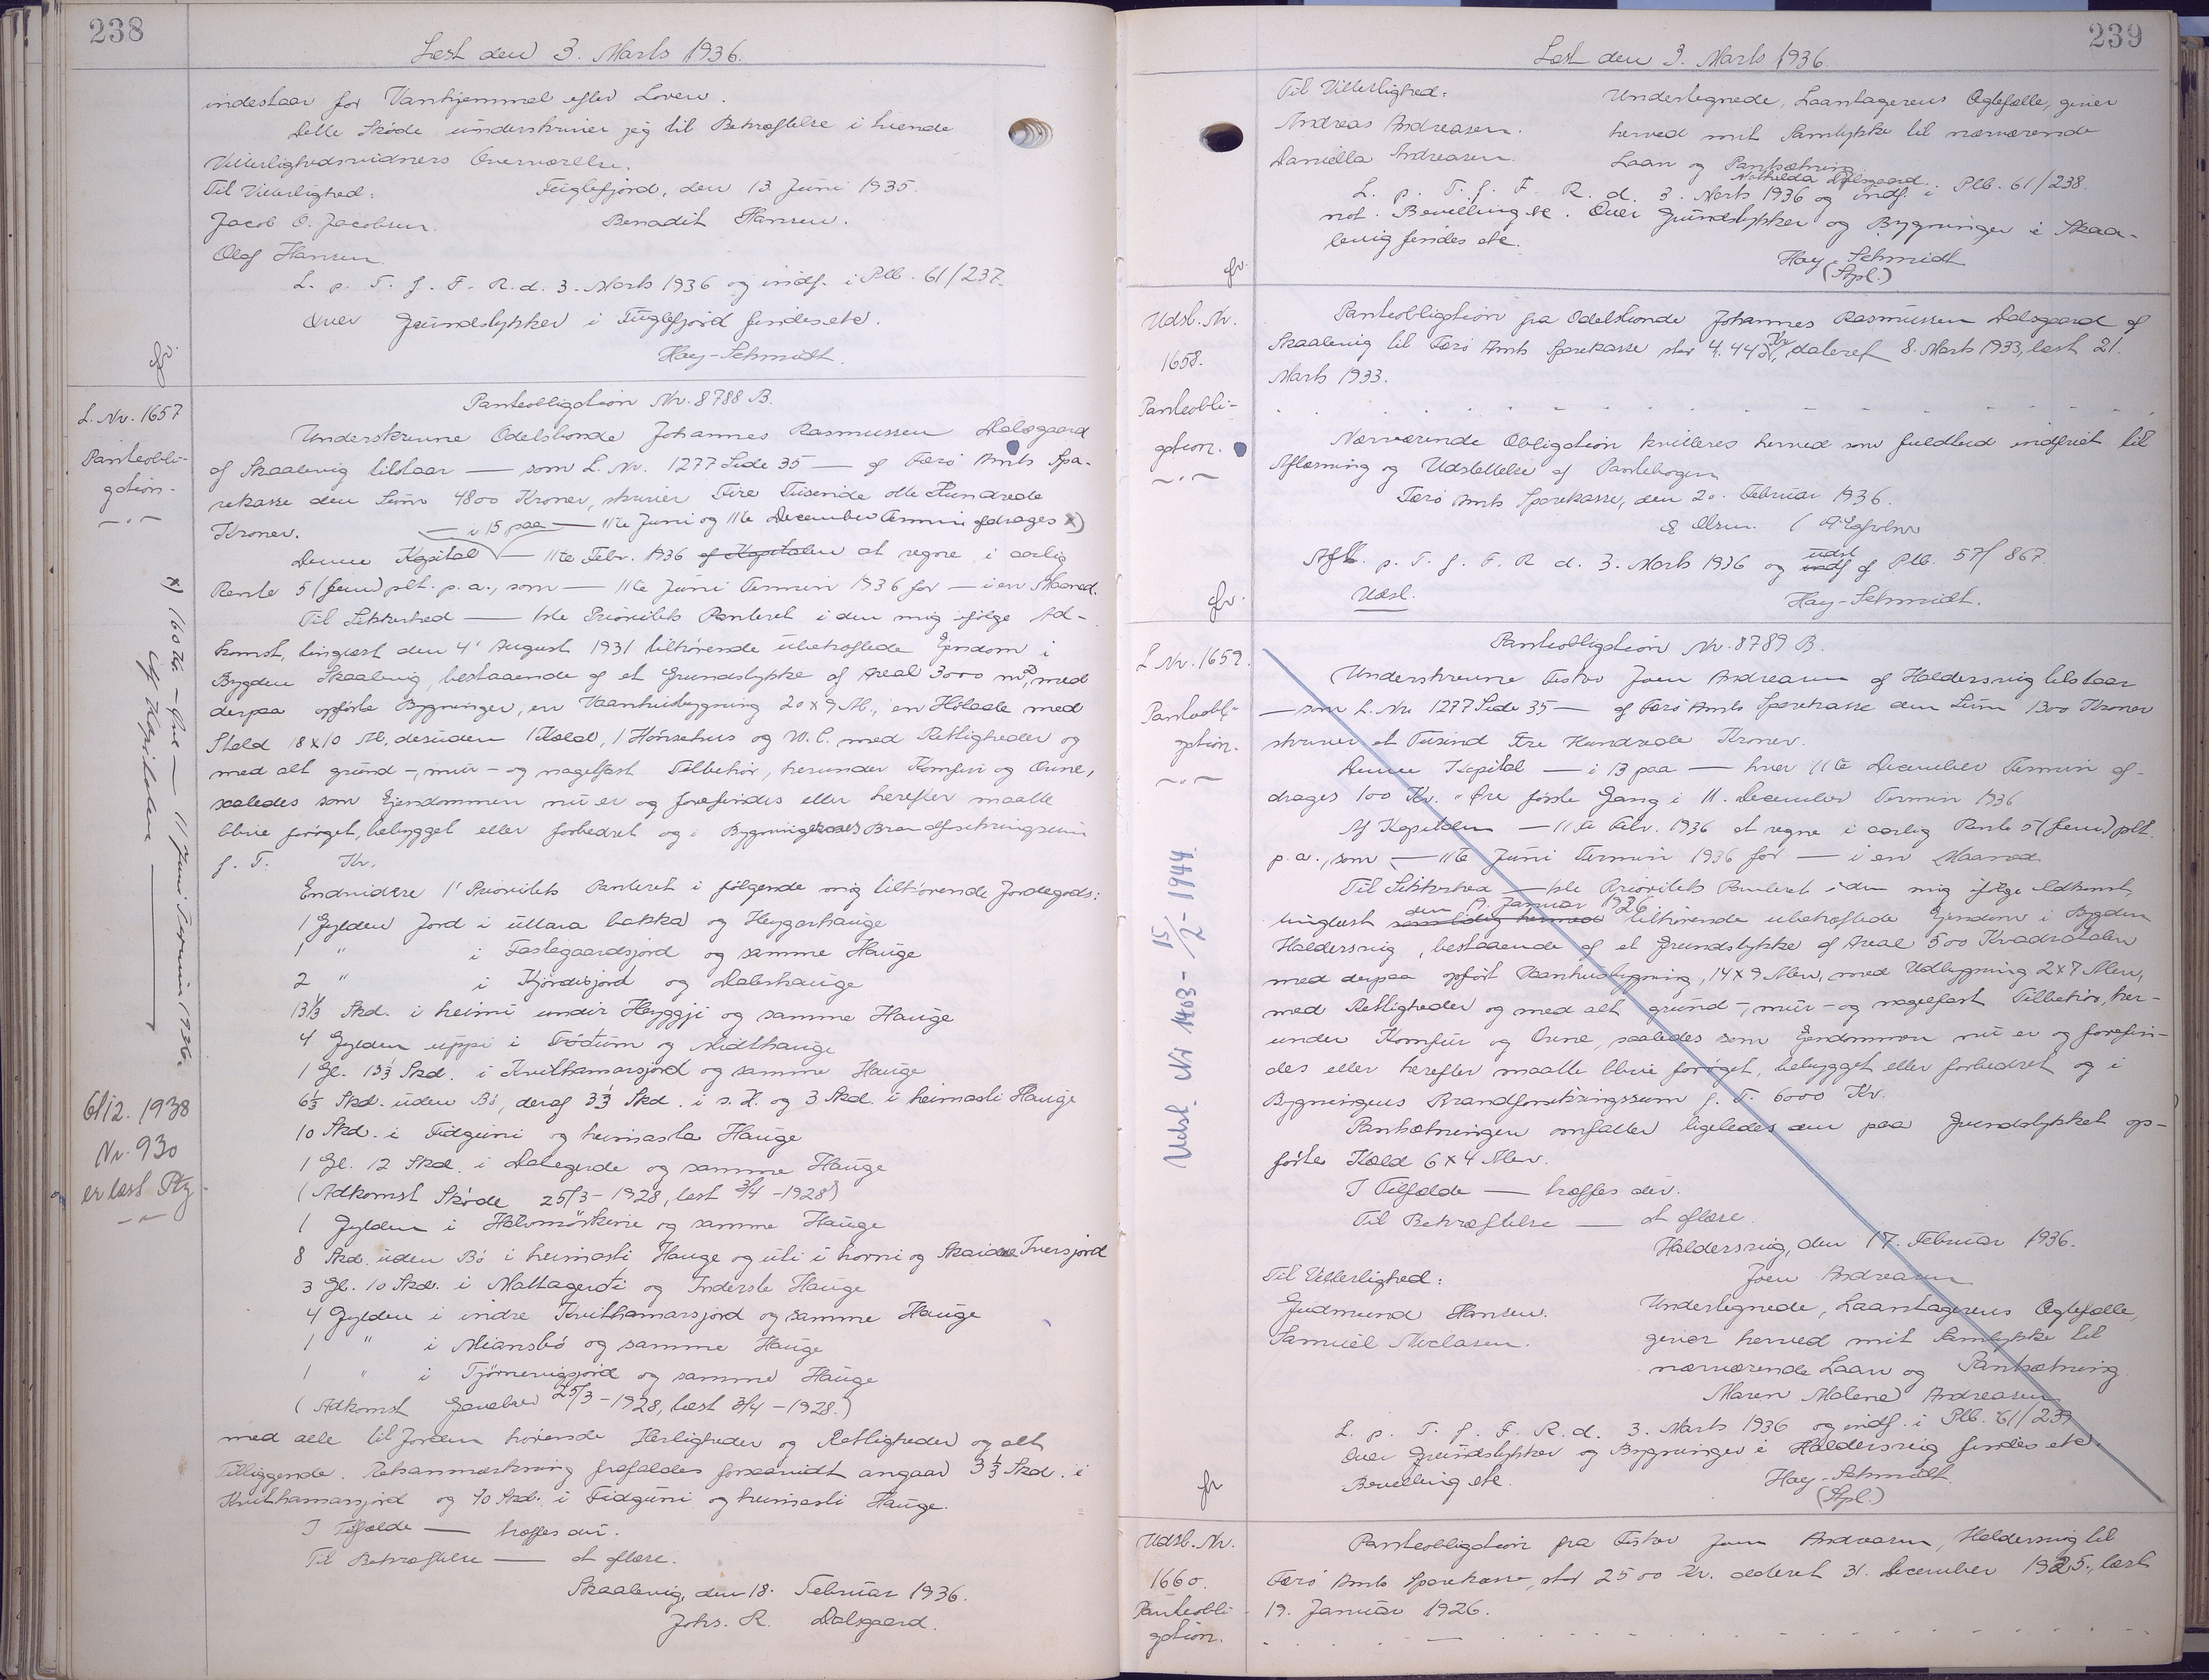 238
Læst den 3. Marts 1936.
indestaar for Vanhjemmel efter Loven.
Dette Skøde underskriver jeg til Bekræftelse i tvende
Vitterlighedsvidners Overværelse.
Til Vitterlighed: Fuglefjord, den 13. Juni 1935.
Jacob O. Jacobsen. Benadit Hansen.
Olaf Hansen.
L. p. T. f. F. R. d. 3. Marts 1936 og indf. i Plb. 61/237.
Over Grundstykker i Fuglefjord findes etc.
Hay-Schmidt.
L. Nr. 1657
Panteobli-
gation.
Panteobligation Nr. 8788 B.
Underskrevne Odelsbonde Johannes Rasmussen Dalsgaard
af Skaalevig tilstaar — som L. Nr. 1277 Side 35 — af Færø Amts Spa-
rekasse den Sum 4800 Kroner, skriver Fire Tusinde otte Hundrede
Kroner. — i 15 paa — 11te Juni og 11te December Termin afdrages x)
Denne Kapital — 11te Febr. 1936 af Kapitalen at regne i aarlig
Rente 5 (fem) pCt. p. a., som — 11te Juni Termin 1936 for — i en Maaned.
Til Sikkerhed — 1ste Prioritets Panteret i den mig ifølge Ad-
komst, tinglæst den 4' August 1931 tilhørende ubehæftede Ejendom i
Bygden Skaalevig, bestaaende af et Grundstykke af Areal 3000 m², med
derpaa opførte Bygninger, en Vaanhusbygning 20 x 9 Al., en Hølade med
Stald 18 x 10 Al., desuden 1 Kæld, 1 Hønsehus og W. C. med Rettigheder og
med alt grund-, mur- og nagelfast Tilbehør, herunder Komfur og Ovne,
saaledes som Ejendommen nu er og forefindes eller herefter maatte
blive forøget, bebygget eller forbedret og i Bygningernes Brandforsikringssum
f. T. Kr.
Endvidere 1' Prioritets Panteret i følgende mig tilhørende Jordegods:
1 Gylden Jord i uttara bakka og Heygarhauge
1 " i Fastegaardsjord og samme Hauge
2 " i Kjórdisjord og Dalashauge
13⅓ Skd. i heimi undir Heyggji og samme Hauge
4 Gylden uppi i Trøðum og Midthauge
1 Gl. 13⅓ Skd. i Kvithamarsjord og samme Hauge
6⅓ Skd. uden Bø, deraf 3⅓ Skd. i s. H. og 3 Skd. i heimasti Hauge
10 Skd. i Fidguni og heimasta Hauge
1 Gl. 12 Skd. i Dalegerde og samme Hauge
(Adkomst Skøde 25/3-1928, læst 3/4-1928)
1 Gylden i Hálvmørkina og samme Hauge
8 Skd. uden Bø i heimasti Hauge og uti i horni og Skaida Tversjord
3 Gl. 10 Skd. i Mattagerði og Inderste Hauge
4 Gylden i indre Kvithamarsjord og samme Hauge
1 " i Miansbó og samme Hauge
1 " i Tjørnevigsjord og samme Hauge
(Adkomst Gavebrev 25/3-1928, læst 3/4-1928.)
med alle til Jorden hørende Herligheder og Rettigheder og alt
Tilliggende. Retsanmærkning frafaldes forsaavidt angaar 3⅓ Skd. i
Kvithamarsjord og 10 Skd. i Fidguni og heimasti Hauge.
I Tilfælde — træffes der.
Til Bekræftelse — at aflæse.
Skaalevig, den 18. Februar 1936.
Johs. R. Dalsgaard.
x) 160 Kr. - Øre — 11 Juni Termin 1936.
af Kapitalen —
6/12. 1938
Nr. 930
er læst Ptg.
239
Læst den 3. Marts 1936.
Til Vitterlighed:
Andreas Andreasen.
Daniella Andreasen.
Undertegnede, Laantagerens Ægtefælle, giver
herved mit Samtykke til nærværende
Laan og Pantsætning
Mathilda Dalsgaard.
L. p. T. f. F. R. d. 3. Marts 1936 og indf. i Plb. 61/238.
not. Bevilling etc. Over Grundstykker og Bygninger i Skaa-
levig findes etc.
Hay-Schmidt
(Spl.)
Udsl. Nr.
1658.
Panteobli-
gation.
Panteobligation fra Odelsbonde Johannes Rasmussen Dalsgaard af
Skaalevig til Færø Amts Sparekasse stor 4.442 Kr., dateret 8. Marts 1933, læst 21.
Marts 1933.
Nærværende Obligation kvitteres herved som fuldtud indfriet til
Aflæsning og Udslettelse af Pantebogen
Færø Amts Sparekasse, den 20. Februar 1936.
Afl. p. T. f. F. R d. 3. Marts 1936 og indf udsl af Plb. 57/867.
Udsl. Hay-Schmidt.
L Nr. 1659.
Panteobli-
gation.
Panteobligation Nr. 8789 B.
Underskrevne Fisker Joen Andreasen af Haldersvig tilstaar
— som L. Nr. 1277 Side 35 — af Færø Amts Sparekasse den Sum 1300 Kroner
skriver et Tusind tre Hundrede Kroner.
Denne Kapital — i 13 paa — hver 11te December Termin af-
drages 100 Kr. " Øre første Gang i 11. December Termin 1936
Af Kapitalen — 11te Febr. 1936 at regne i aarlig Rente 5 (fem) pCt.
p. a., som — 11te Juni Termin 1936 for — i en Maaned
Til Sikkerhed — 1ste Prioritets Panteret i den mig ifølge Adkomst,
den 19. Januar 1926
tinglæst samtidig hermed tilhørende ubehæftede Ejendom i Bygden
Haldersvig, bestaaende af et Grundstykke af Areal 500 Kvadratalen
med derpaa opført Vaanhusbygning, 14 x 9 Alen, med Udbygning 2 x 7 Alen,
med Rettigheder og med alt grund-, mur- og nagelfast Tilbehør, her-
under Komfur og Ovne, saaledes som Ejendommen nu er og forefin-
des eller herefter maatte blive forøget, bebygget eller forbedret og i
Bygningens Brandforsikringssum f. T. 6000 Kr.
Pantsætningen omfatter ligeledes den paa Grundstykket op-
førte Kæld 6 x 4 Alen.
I Tilfælde — træffes der.
Til Bekræftelse — at aflæse.
Haldersvig, den 17. Februar 1936.
Til Vitterlighed: Joen Andreasen
Gudmund Hansen.
Samuel Niclasen.
Undertegnede, Laantagerens Ægtefælle,
giver herved mit Samtykke til
nærværende Laan og Pantsætning
Maren Malene Andreasen
L. p. T. f. F. R. d. 3. Marts 1936 og indf. i Plb. 61/239
Over Grundstykker og Bygninger i Haldersvig findes etc.
Bevilling etc. Hay-Schmidt
(Spl.)
Udsl. Nr 1403 - 15/2 - 1944.
Udsl. Nr.
1660.
Panteobli-
gation.
Panteobligation fra Fisker Joen Andreasen, Haldersvig til
Færø Amts Sparekasse, stor 2500 Kr. dateret 31. December 1925, læst
19. Januar 1926.